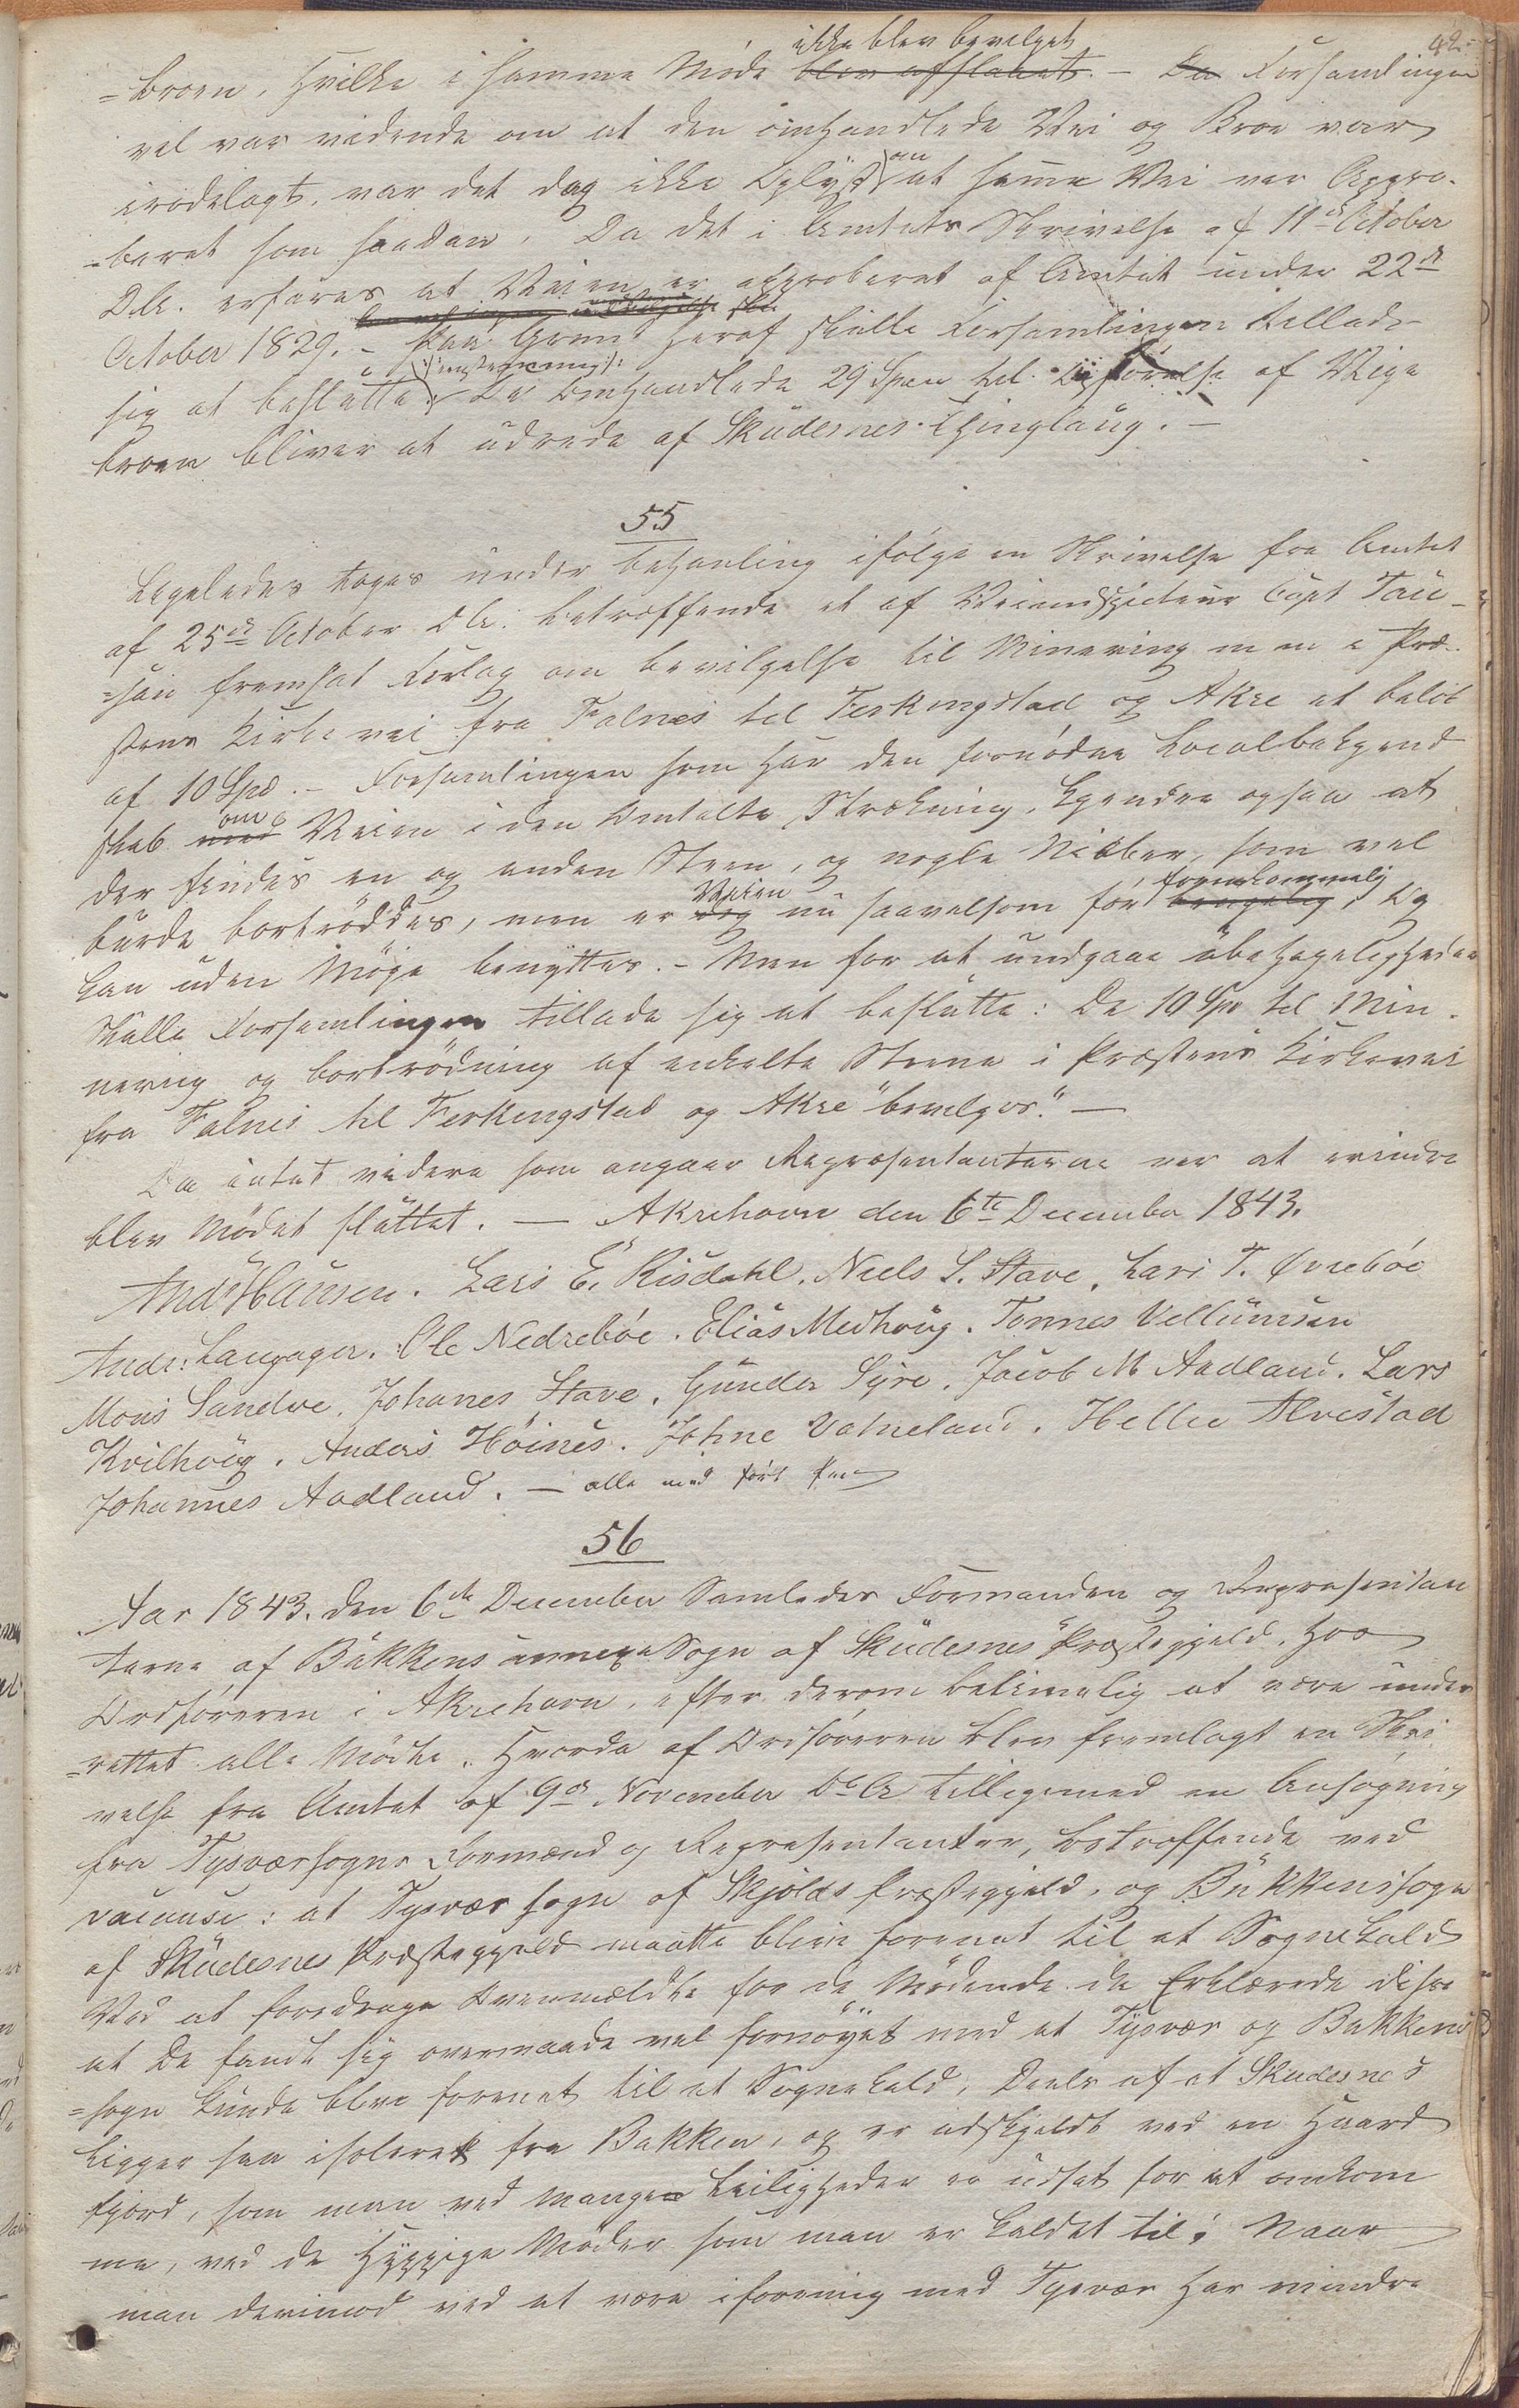 42.
ikke blev bevilget
=broen, hvilke i samme Møde blev afslaaet. – Da Forsamlingen
vel var vidende om at den omhandlede Vei og Broe var
irodelagt, var det dog ikke Oplyst om at samme Vei var Appro-
=beret som saadan. Da det i Amtets Skrivelse af 11te October
D.A. erfares at Veien er approberet af Amtet under 22de
October 1829. – Paa Grund heraf skulle Forsamlingen tillade
sig at beslutte De Omhandlede 29 Spd til Opførelse af Veige
broen bliver at udrede af Skudesnes Thinglaug. –
55
Ligeledes toges under behanling ifølge en Skrivelse fra Amtet
af 25de October D.A. betræffende et af Veiinspecteur Capt Tau-
=san fremsat Forlag om bevilgelse til Minering m m i Præ-
stens Kirkevei fra Falnes til Ferkingstad og Akre et beløb
af 10 Spd. – Forsamlingen som har den fornødne Localbekjend
skab med om Veien i den Omtalte Strækning, kjender ogsaa at
der findes en og anden Steen, og nogle Nibber, som vel
Veien fremkommelig
burde bortrøddes, men er dog nu saavelsom før brugelig, og
kan uden Møje benyttes. – Men for at undgaae ubehageligheder
skulle Forsamlingen tillade sig at beslutte: De 10 Spd til Min-
nering og bortrødning af enkelte Steene i Præstens Kirkevei
fra Falnes til Ferkingstad og Akre "bevilges". –
Da intet videre som angaar Repræsentanterne var at erindre
blev Mødet sluttet. – Akrehavn den 6te December 1843.
And: Hansen. Lars E. Risdahl. Niels L. Stave. Lars T. Øvrebøe
Andr: Langager. Ole Nedrebøe. Elias Medhoug. Tonnes Vellumsen
Mons Sandve. Johanes Stave. Gunder Syre. Jacob M Aadland. Lars
Kvilhoug. Anders Høines. Johne Vatneland. Helle Alvestad
Johannes Aadland. – alle med ført Pen
56
Aar 1843. den 6te December Samledes Formanden og Repræsentan
terne af Bukkens annexe Sogn af Skudesnes Præstegjeld, hos
Ordføreren i Akrehavn, efter derom betimelig at være under
=rettet alle Mødte. Hvorda af Ordføreren blev fremlagt en Skri
velse fra Amtet af 9de November D.A. tilligemed en Ansøgning
fra Tysværsogns Formænd og Repræsentanter, betræffende ved
vacance: at Tysvær sogn af Skjolds Præstegjeld, og Bukkensogn
af Skudesnes Præstegjeld maatte blive forenet til et Sognekald
Ved at foredrage Ovenmeldte for de Mødende da Erklærede disse
at De fandt sig overmaade vel fornøyet med at Tysvær og Bukkens
=sogn kunde blive forenet til et Sognekald. Deels af at Skudesnes
ligger saa isoleret fra Bukken, og er adskjeldt ved en haard
fjord, som man ved mange Leiligheder er udsat for at omkom
me, ved de Hyppige Møder som man er kaldet til; Naar
man derimod ved at være iforening med Tysvær har mindre